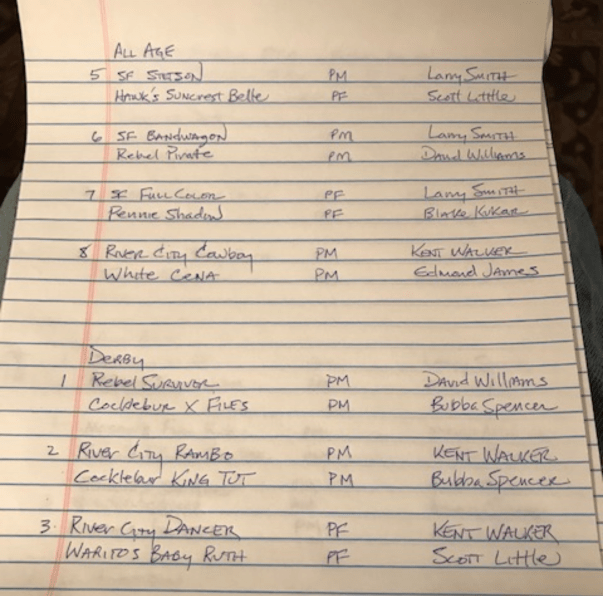 ALL AGE
5 SF STETSON PM Larry SMITH
HAWK'S SUNCREST Belle PF SCOTT Little
6 SF BANDWAGON PM Larry SMITH
Rebel Pirate PM David Williams
7 SC Full Color PF Larry SMITH
Pennie Shadow PF Blake Kukar
8 RIVER CITY COWBOY PM KENT WALKER
White CENA PM Edmond James
DERBY
1 Rebel SURVIVOR PM DAVID WILLIAMS
Cocklebur X FILES PM Bubba Spencer
2 RIVER CITY RAMBO PM KENT WALKER
Cocklebur KING TUT PM Bubba Spencer
3. RIVER CITY DANCER PF KENT WALKER
WARITOS BABY RUTH PF SCOTT Little